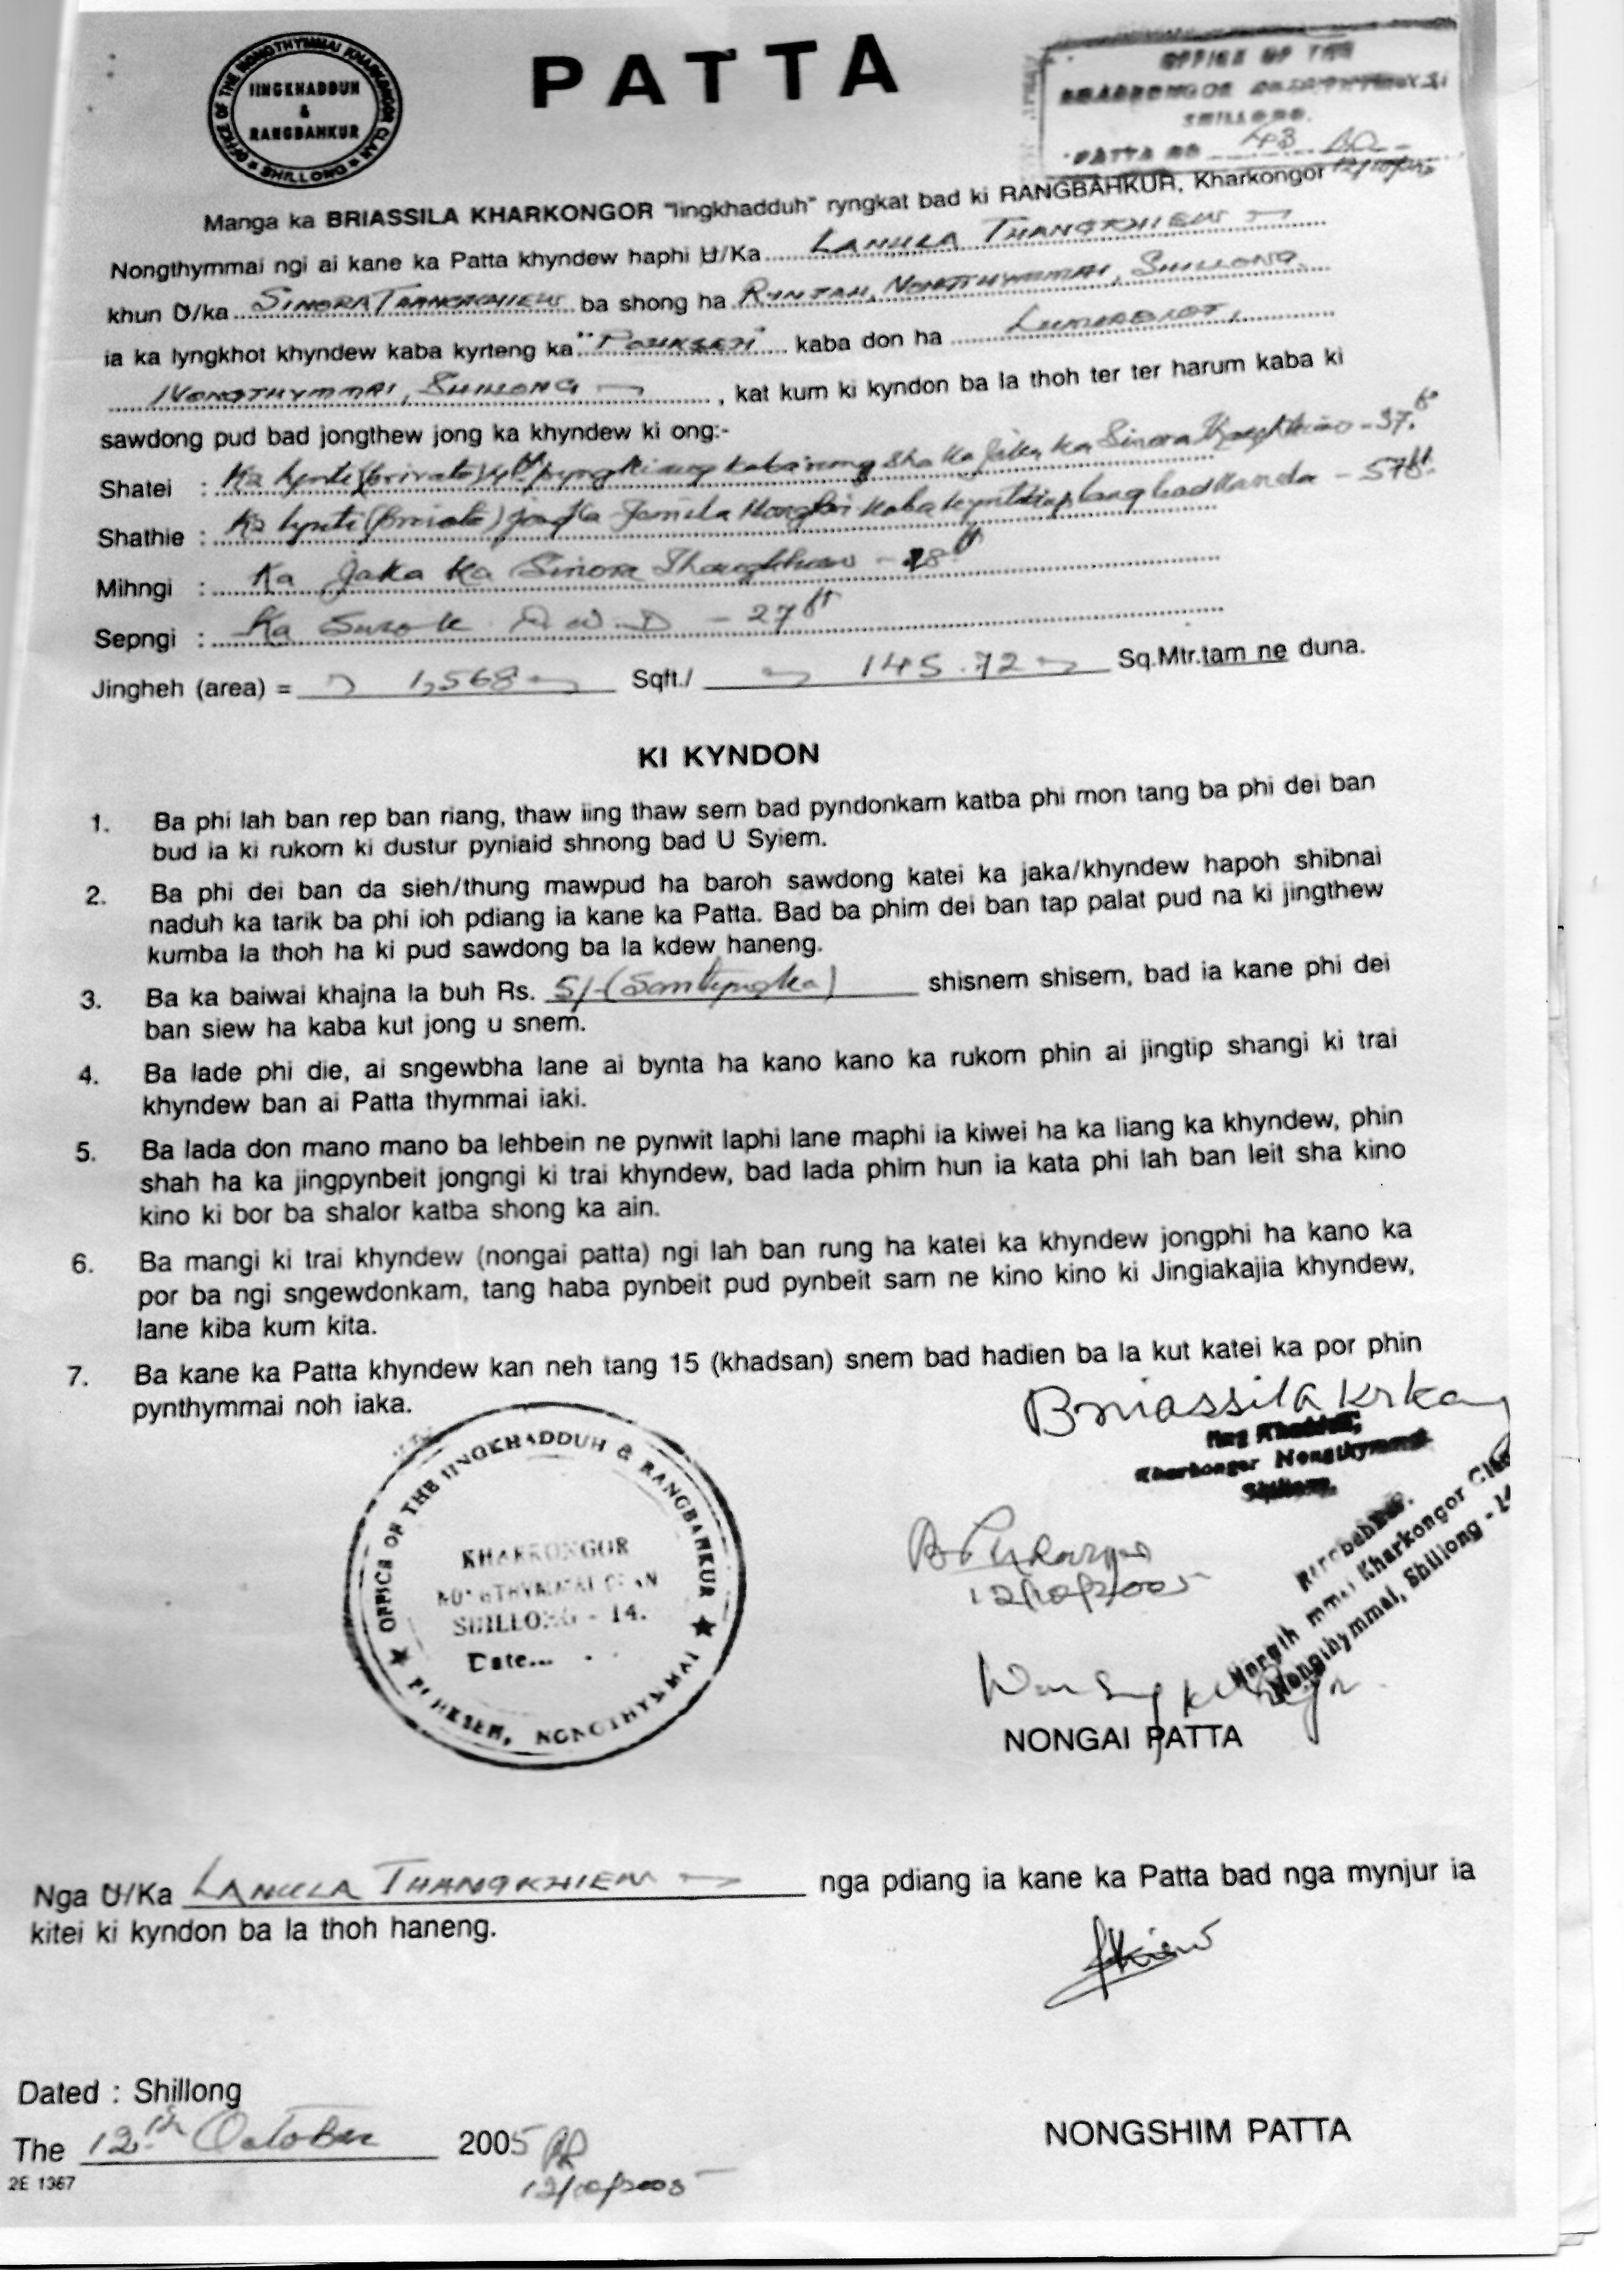 OFFICE OF THE NONGTHYMMAI KHARKONGOR CLAN
SHILLONG
IINGKHADDUH
&
RANGBAHKUR
PATTA
OFFICE OF THE
SHILLONG.
PATTA NO
12/10/05
Manga ka BRIASSILA KHARKONGOR "Iingkhadduh" ryngkat bad ki RANGBAHKUR, Kharkongor
Nongthymmai ngi ai kane ka Patta khyndew haphi U/Ka LANULA THANGKHIEW
khun U/ka SINORA THANGKHIEW ba shong ha RYNJAH, NONGTHYMMAI, SHILLONG.
ia ka lyngkhot khyndew kaba kyrteng ka "POHKSEH" kaba don ha
NONGTHYMMAI, SHILLONG , kat kum ki kyndon ba la thoh ter ter harum kaba ki
sawdong pud bad jongthew jong ka khyndew ki ong:-
Shatei : Ka lynti (private) 4ft kaba rung sha ka jaka ka Sinora Thangkhiew - 57.ft
Shathie : Ka lynti (Private) jong ka - 57ft.
Mihngi : Ka jaka ka Sinora Thangkhiew - 28ft
Sepngi : Ka Surok P.W.D - 27ft
Jingheh (area) = 1,568 Sqft./ 145.72 Sq.Mtr.tam ne duna.
KI KYNDON
1. Ba phi lah ban rep ban riang, thaw iing thaw sem bad pyndonkam katba phi mon tang ba phi dei ban
bud ia ki rukom ki dustur pyniaid shnong bad U Syiem.
2. Ba phi dei ban da sieh/thung mawpud ha baroh sawdong katei ka jaka/khyndew hapoh shibnai
naduh ka tarik ba phi ioh pdiang ia kane ka Patta. Bad ba phim dei ban tap palat pud na ki jingthew
kumba la thoh ha ki pud sawdong ba la kdew haneng.
3. Ba ka baiwai khajna la buh Rs. 5/-(San tyngka) shisnem shisem, bad ia kane phi dei
ban siew ha kaba kut jong u snem.
4. Ba lade phi die, ai sngewbha lane ai bynta ha kano kano ka rukom phin ai jingtip shangi ki trai
khyndew ban ai Patta thymmai iaki.
5. Ba lada don mano mano ba lehbein ne pynwit laphi lane maphi ia kiwei ha ka liang ka khyndew, phin
shah ha ka jingpynbeit jongngi ki trai khyndew, bad lada phim hun ia kata phi lah ban leit sha kino
kino ki bor ba shalor katba shong ka ain.
6. Ba mangi ki trai khyndew (nongai patta) ngi lah ban rung ha katei ka khyndew jongphi ha kano ka
por ba ngi sngewdonkam, tang haba pynbeit pud pynbeit sam ne kino kino ki Jingiakajia khyndew,
lane kiba kum kita.
7. Ba kane ka Patta khyndew kan neh tang 15 (khadsan) snem bad hadien ba la kut katei ka por phin
pynthymmai noh iaka.
Briassila
Kharkongor Nongthymmai
Shillong.
OFFICE OF THE IINGKHADDUH & RANGBAHKUR
KHARKONGOR
NONGTHYMMAI CLAN
SHILLONG - 14.
Date...
POHKSEH, NONGTHYMMAI
12/10/2005
Kharkongor Clan
Nongthymmai, Shillong - 14
NONGAI PATTA
Nga U/Ka LANULA THANGKHIEW nga pdiang ia kane ka Patta bad nga mynjur ia
kitei ki kyndon ba la thoh haneng.
Dated : Shillong
The 12th October 2005
12/10/2005
NONGSHIM PATTA
2E 1367